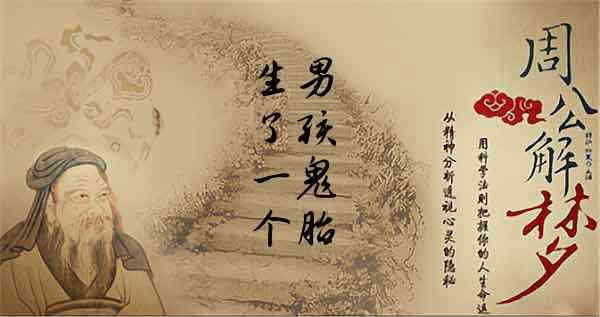 周公解梦
用科学法则把握你的人生命运
从精神分析透视心灵的隐秘
生了一个
男孩鬼胎